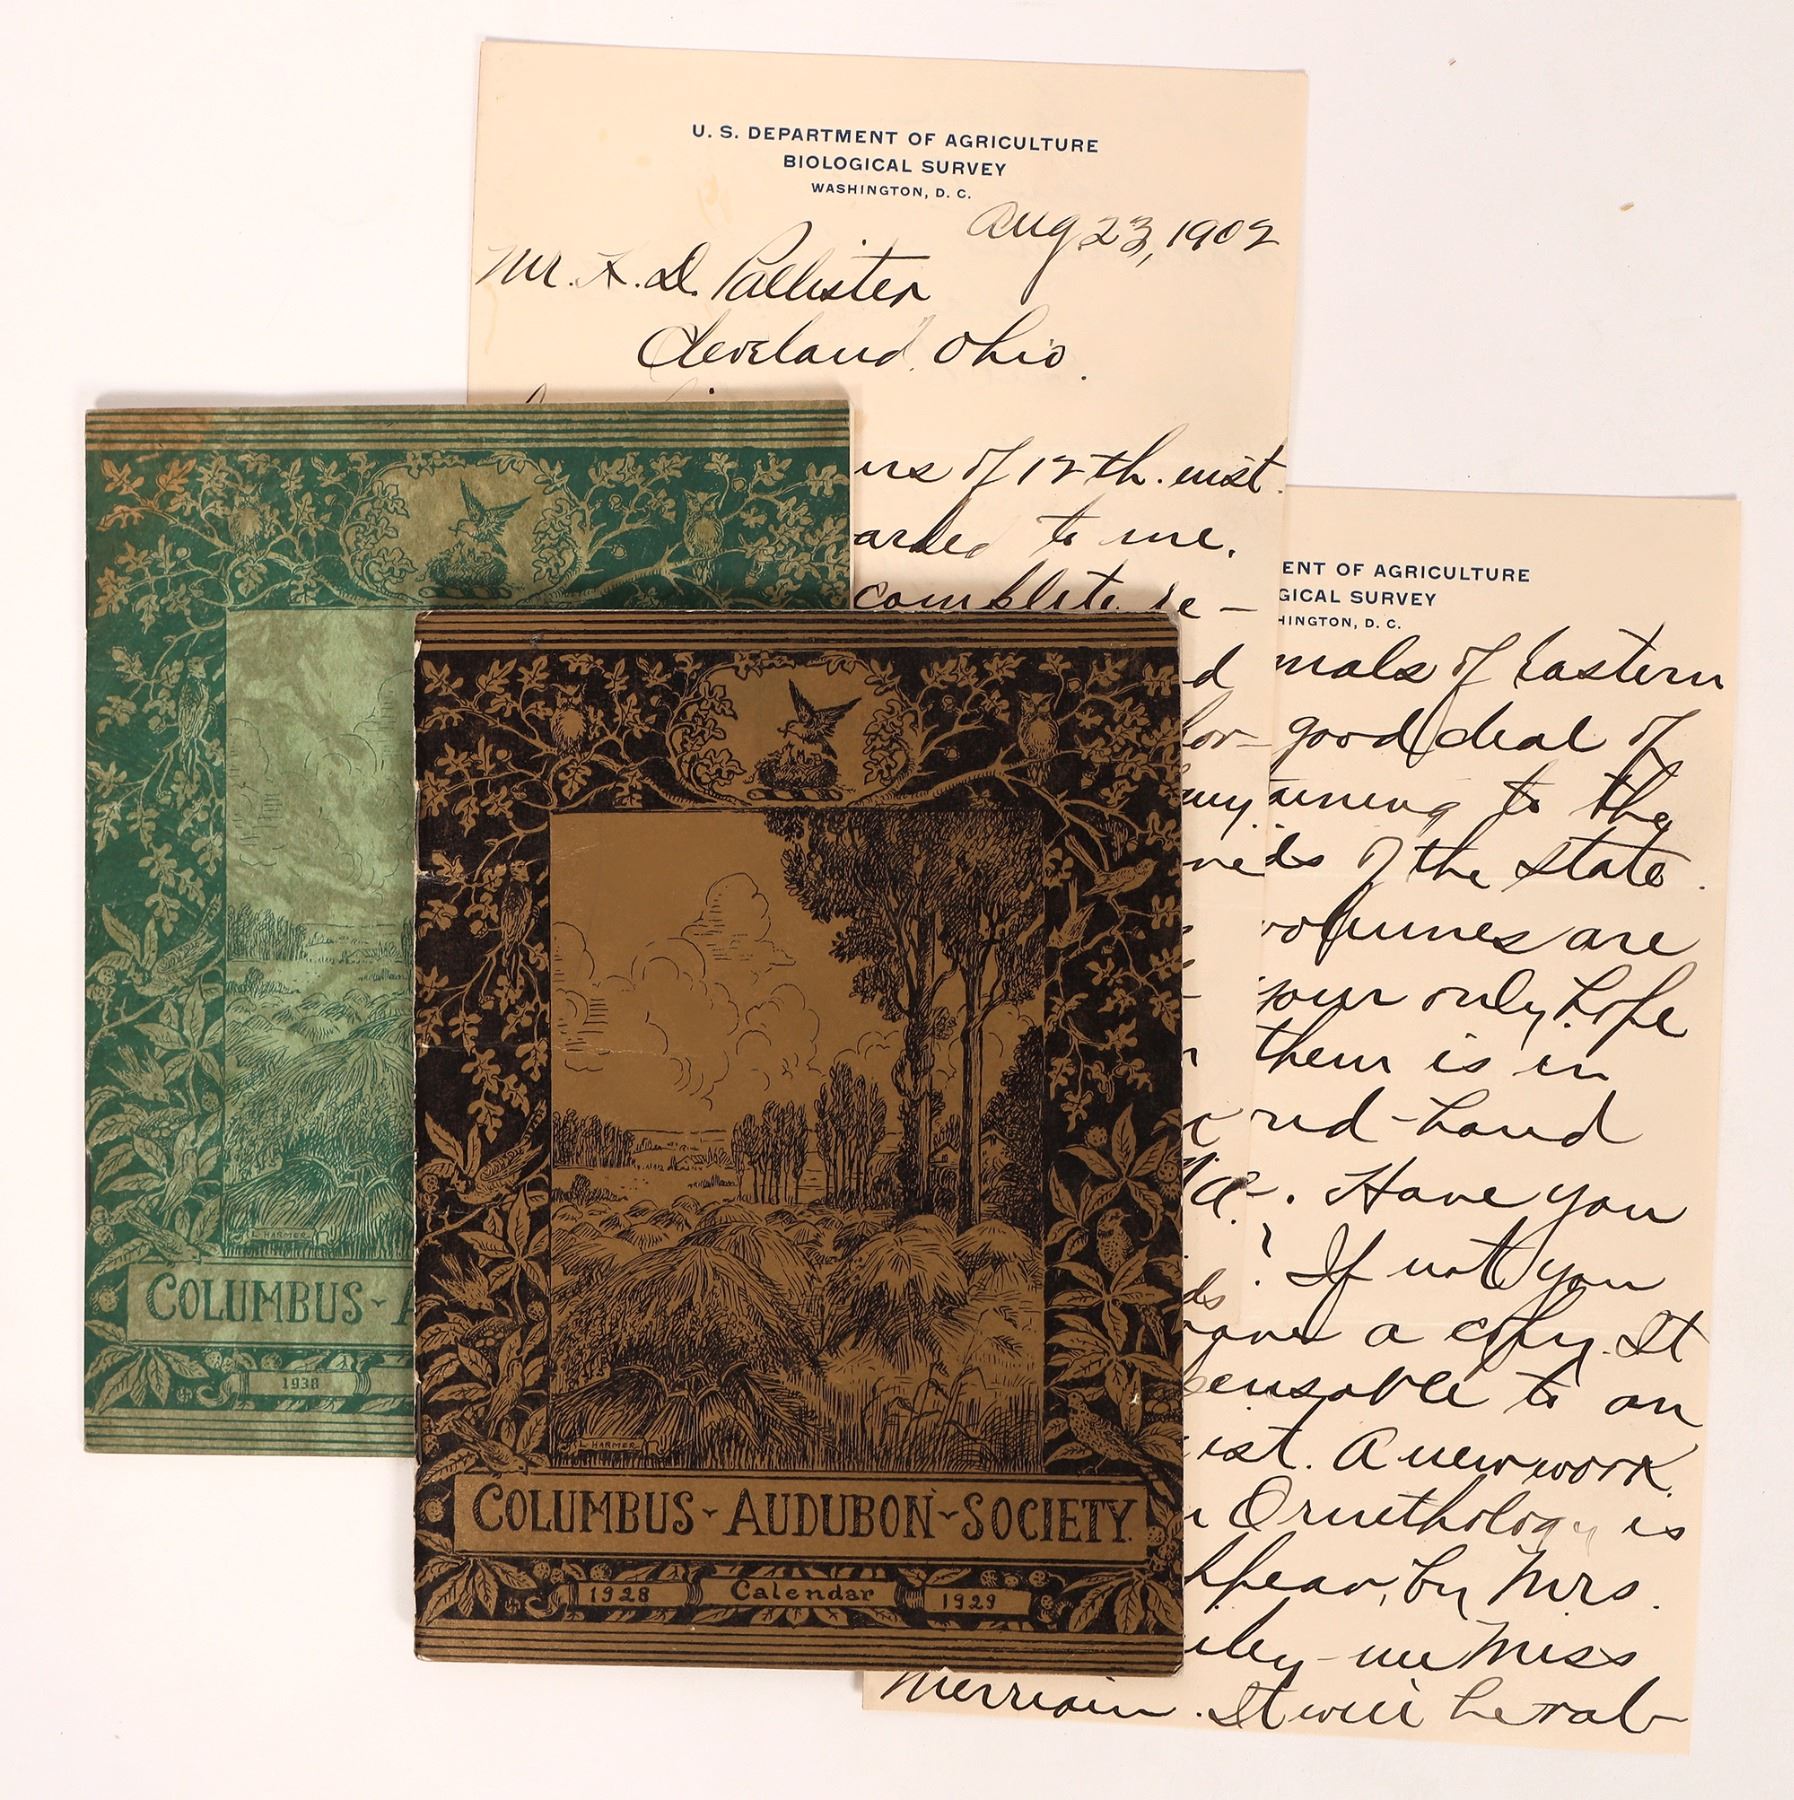 U. S. DEPARTMENT OF AGRICULTURE
BIOLOGICAL SURVEY
WASHINGTON, D. C.
Aug 23, 1902
Mr. A. D. Pallister
Cleveland, Ohio.
urs of 12th. inst.
arded to me.
complete re-
d
or-
ENT OF AGRICULTURE
GICAL SURVEY
HINGTON, D. C.
mals of Eastern
good deal of
taining to the
rids of the state.
volumes are
your only hope
them is in
nd-hand
. Have you
? If not you
have a copy. It
pensable to an
ist. A new work
n Ornithology is
ppear, by Mrs.
iley - nee Miss
Merriam. It will be val-
L. HARMER
COLUMBUS - A
1938
L. HARMER
COLUMBUS - AUDUBON - SOCIETY.
1928 Calendar 1929